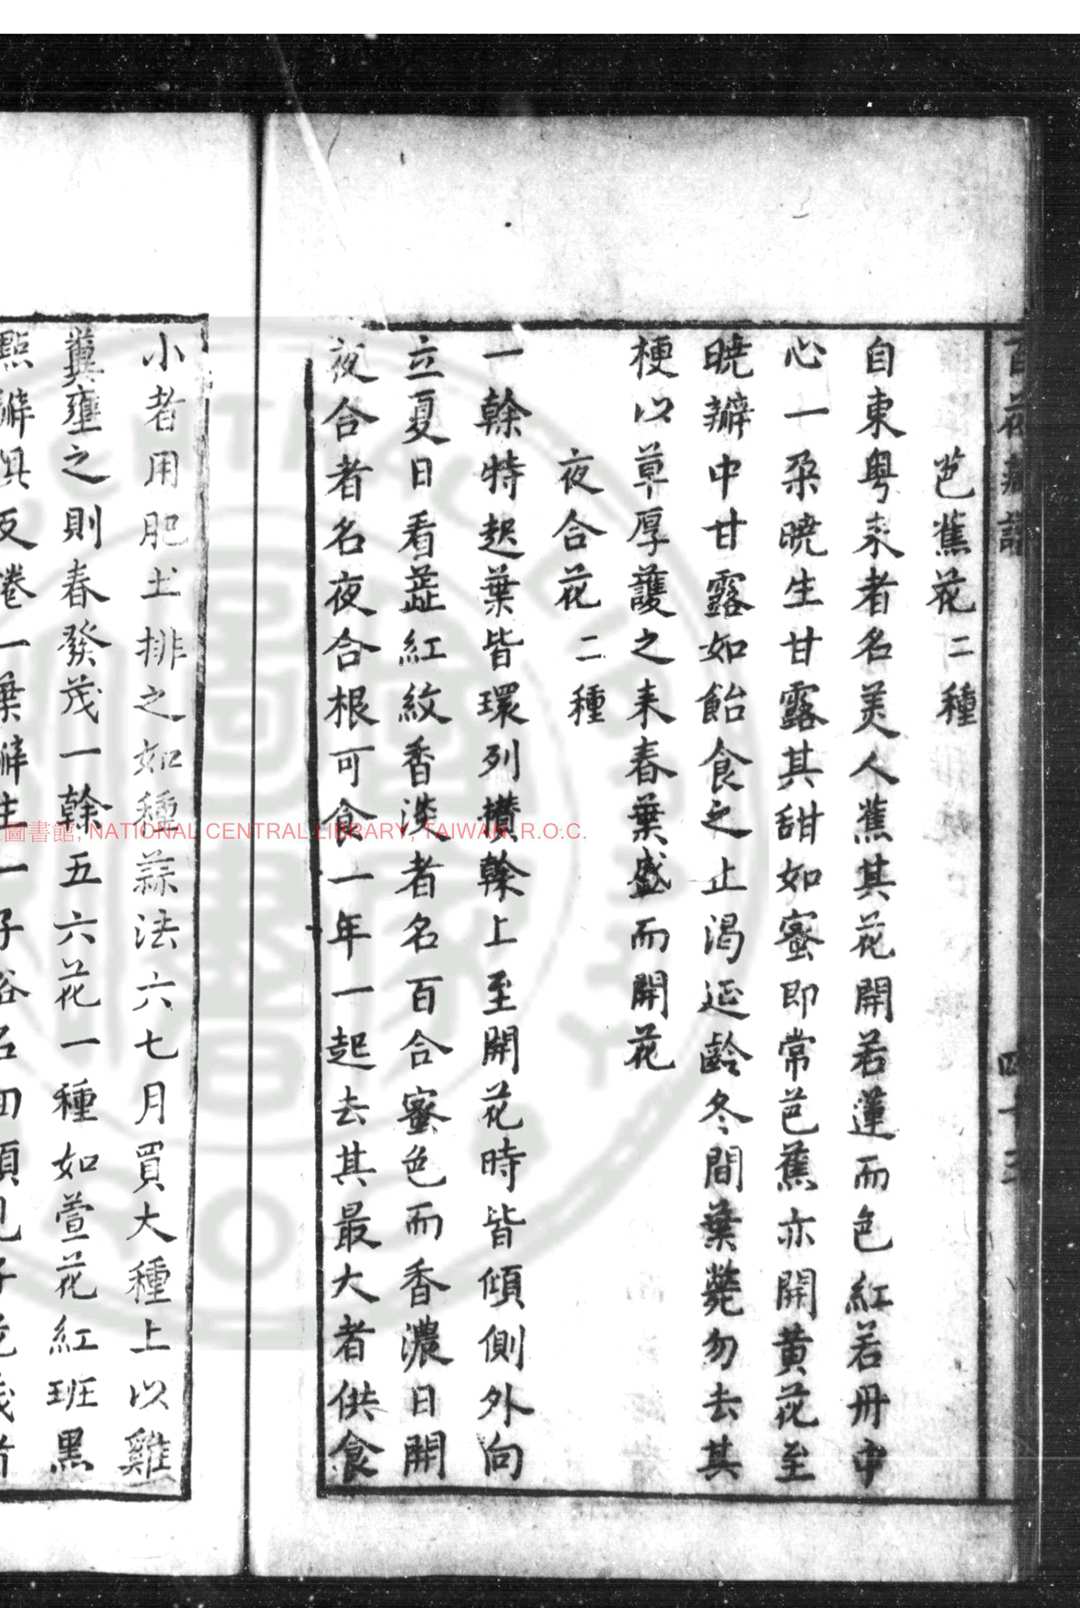 芭蕉花二種
自東粤來者名美人蕉其花開若蓮而色紅若冊中
心一朶曉生甘露其甜如蜜即常芭蕉亦開黄花至
曉瓣中甘露如飴食之止渴延齡冬間葉薨勿去其
梗以草厚護之来春葉盛而開花
夜合花二種
一榦特起葉皆環列攅榦上至開花時皆傾側外向
立夏日看蕋紅紋香淡者名百合蜜色而香濃日開
夜合者名夜合根可食一年一起去其最大者供食
小者用肥土排之如種蒜法六七月買大種上以雞
糞壅之則春發茂一榦五六花一種如萱花紅班黒
圖書館, NATIONAL CENTRAL LIBRARY, TAIWAN, R.O.C.